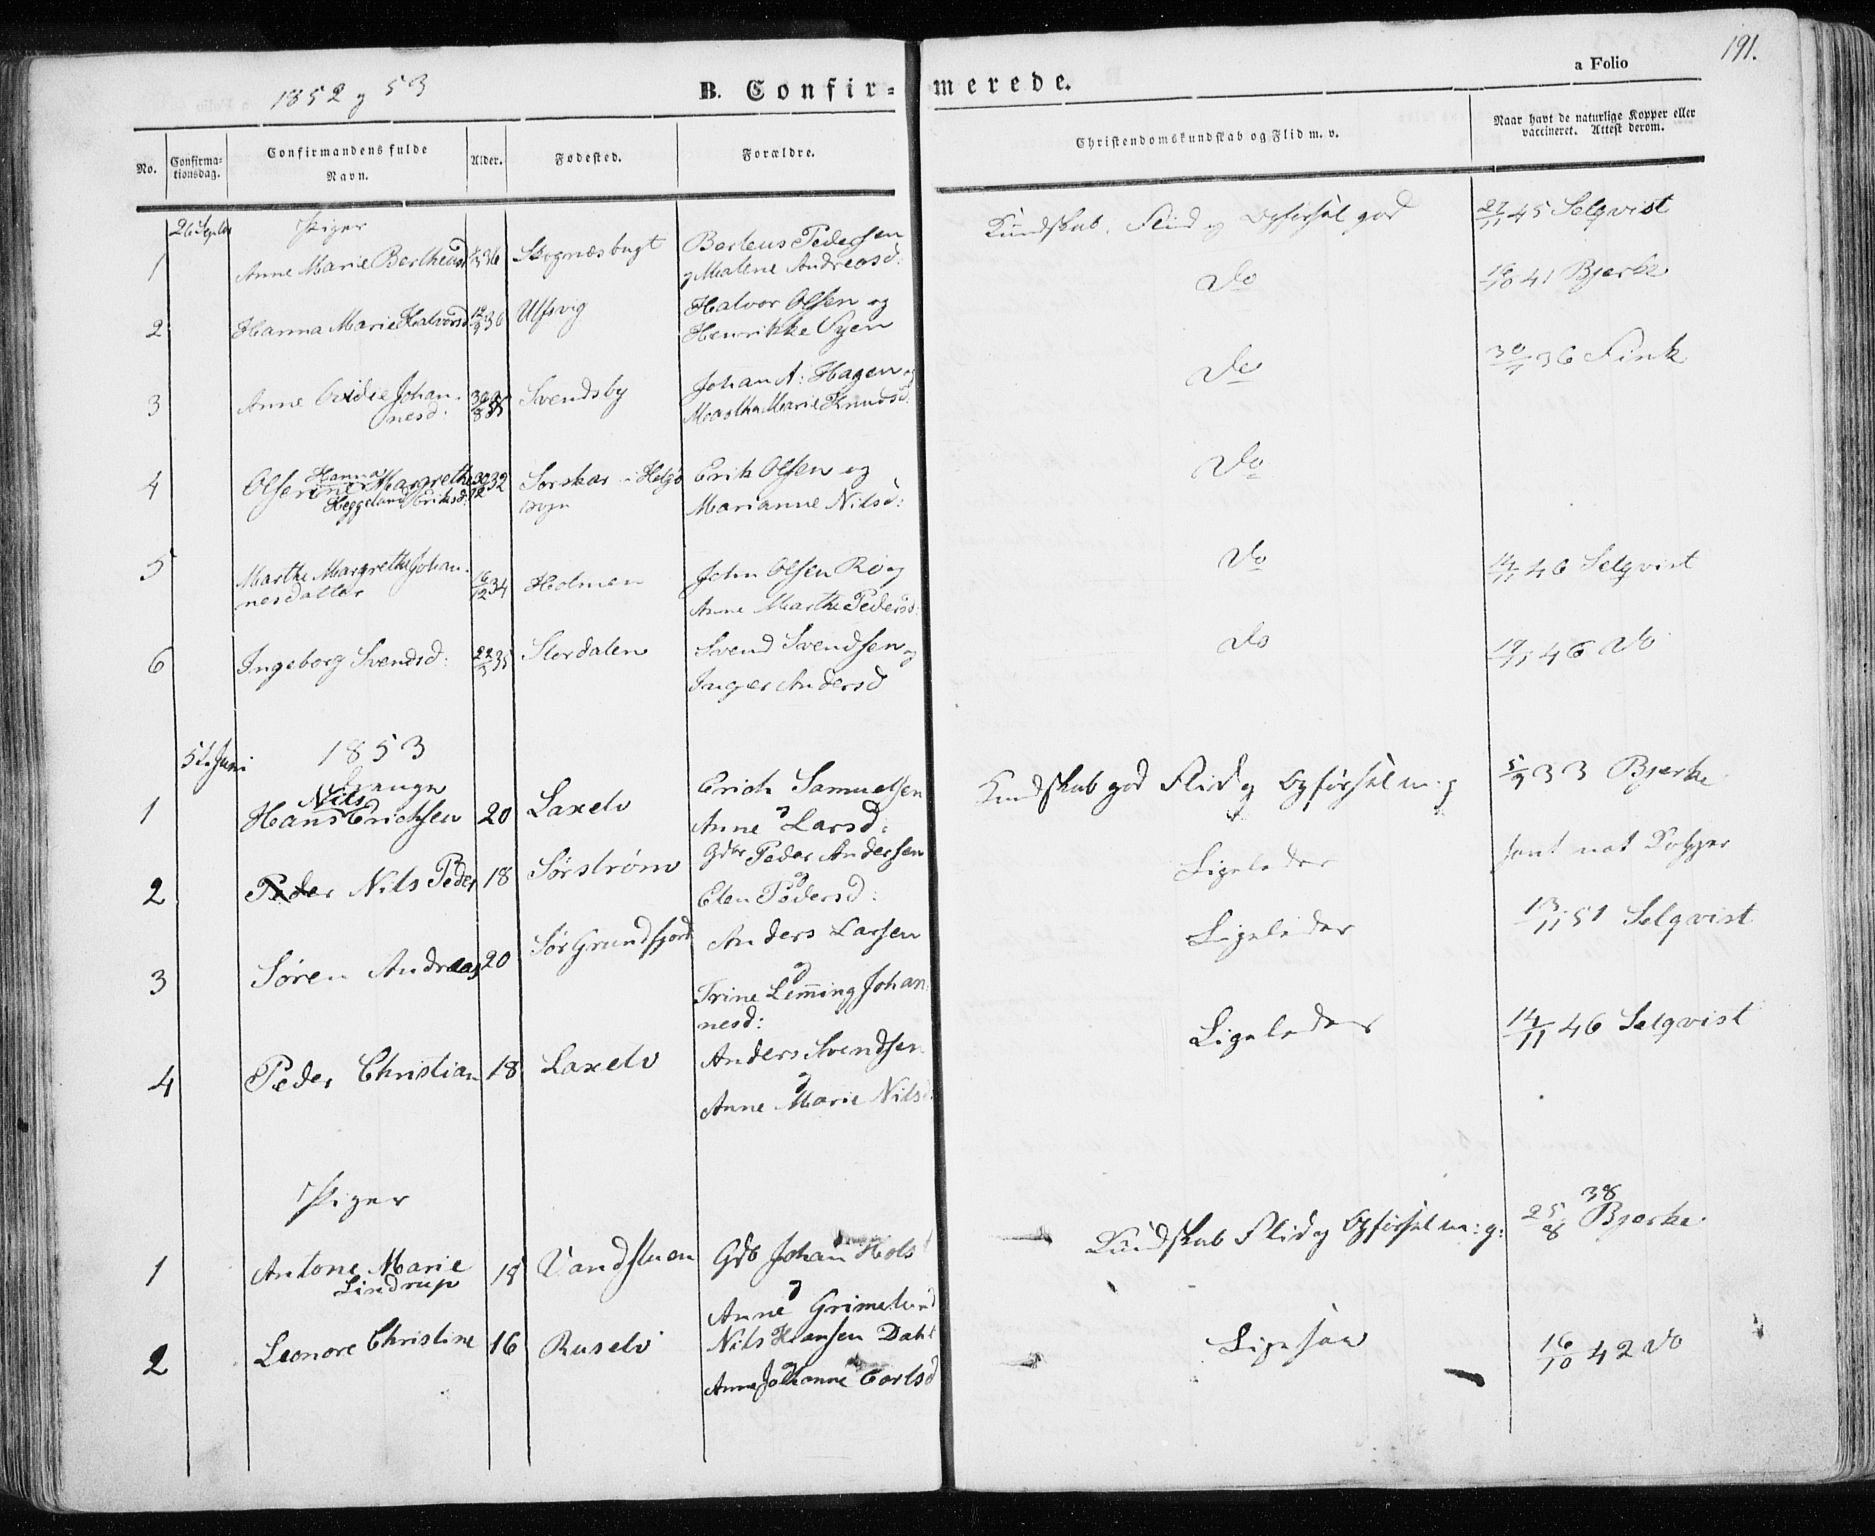 191.
a Folio
1852 og 53
B. Confir-merede.
No.
Confirma-
tionsdag.
Confirmandens fulde
Navn.
Alder.
Fødested.
Forældre.
Christendomskundskab og Flid m. v.
Naar havt de naturlige Kopper eller
vaccineret. Attest derom.
26 Septbr
Piger
1 Anne Marie Bertheusd 36 Skognæsbugt Berteus Pedersen
og Malene Andreasd:
Kundskab, Flid og Opførsel god
27/11 45 Selqvist
2 Hanna Marie Halvorsd 36 Ulfsvig Halvor Olsen og
Henrikke Oyen
Do
16/10 41 Bjerke
3 Anne Ovidie Johan-
nesd: Svendsby Johan A: Hagen og
Martha Marie Knudsd:
Do
36 Fink
4 Olserine Hanna Margrethe
Heggeland Eriksd: 30/12 32 Sørskar i Helgø
sogn
Erik Olsen og
Marianne Nilsd:
Do
5 Marthe Margrethe Johan-
nesdatter 16/12 34 Holmen John Olsen Ro og
Anne Marthe Pedersd:
Do
14/11 46 Selqvist
6 Ingeborg Svendsd: 35 Stordalen Svend Svendsen og
Inger Andersd
Do
19/11 46 Do
5te Juni 1853
Drenge
1 Hans Nils Erichsen 20 Laxelv Erich Samuelsen
Anne Larsd:
Kundskab god Flid og Opførsel m: g
33 Bjerke
2 Peder Nils Peder 18 Sørstrøm Gdbr Peder Andersen
Elen Pedersd:
Ligeledes
havt nat Kopper
3 Søren Andreas 20 Sør Grundfjord Anders Larsen
Trine Lemming Johan-
nesd:
Ligeledes
13/11 51 Selqvist
4 Peder Christian 18 Laxelv Anders Svendsen
Anne Marie Nilsd:
Ligeledes
14/11 46 Selqvist
Piger
1 Antone Marie
Lindrup Vandstuen Gdb Johan Holst
Anne Grimelund
Kundskab Flid og Opførsel m: g:
25/8 38 Bjerke
2 Leonore Christine 16 Ruselv Nils Hansen Dahl
Anne Johanne Carlsd
Ligesaa
16/10 42 Do